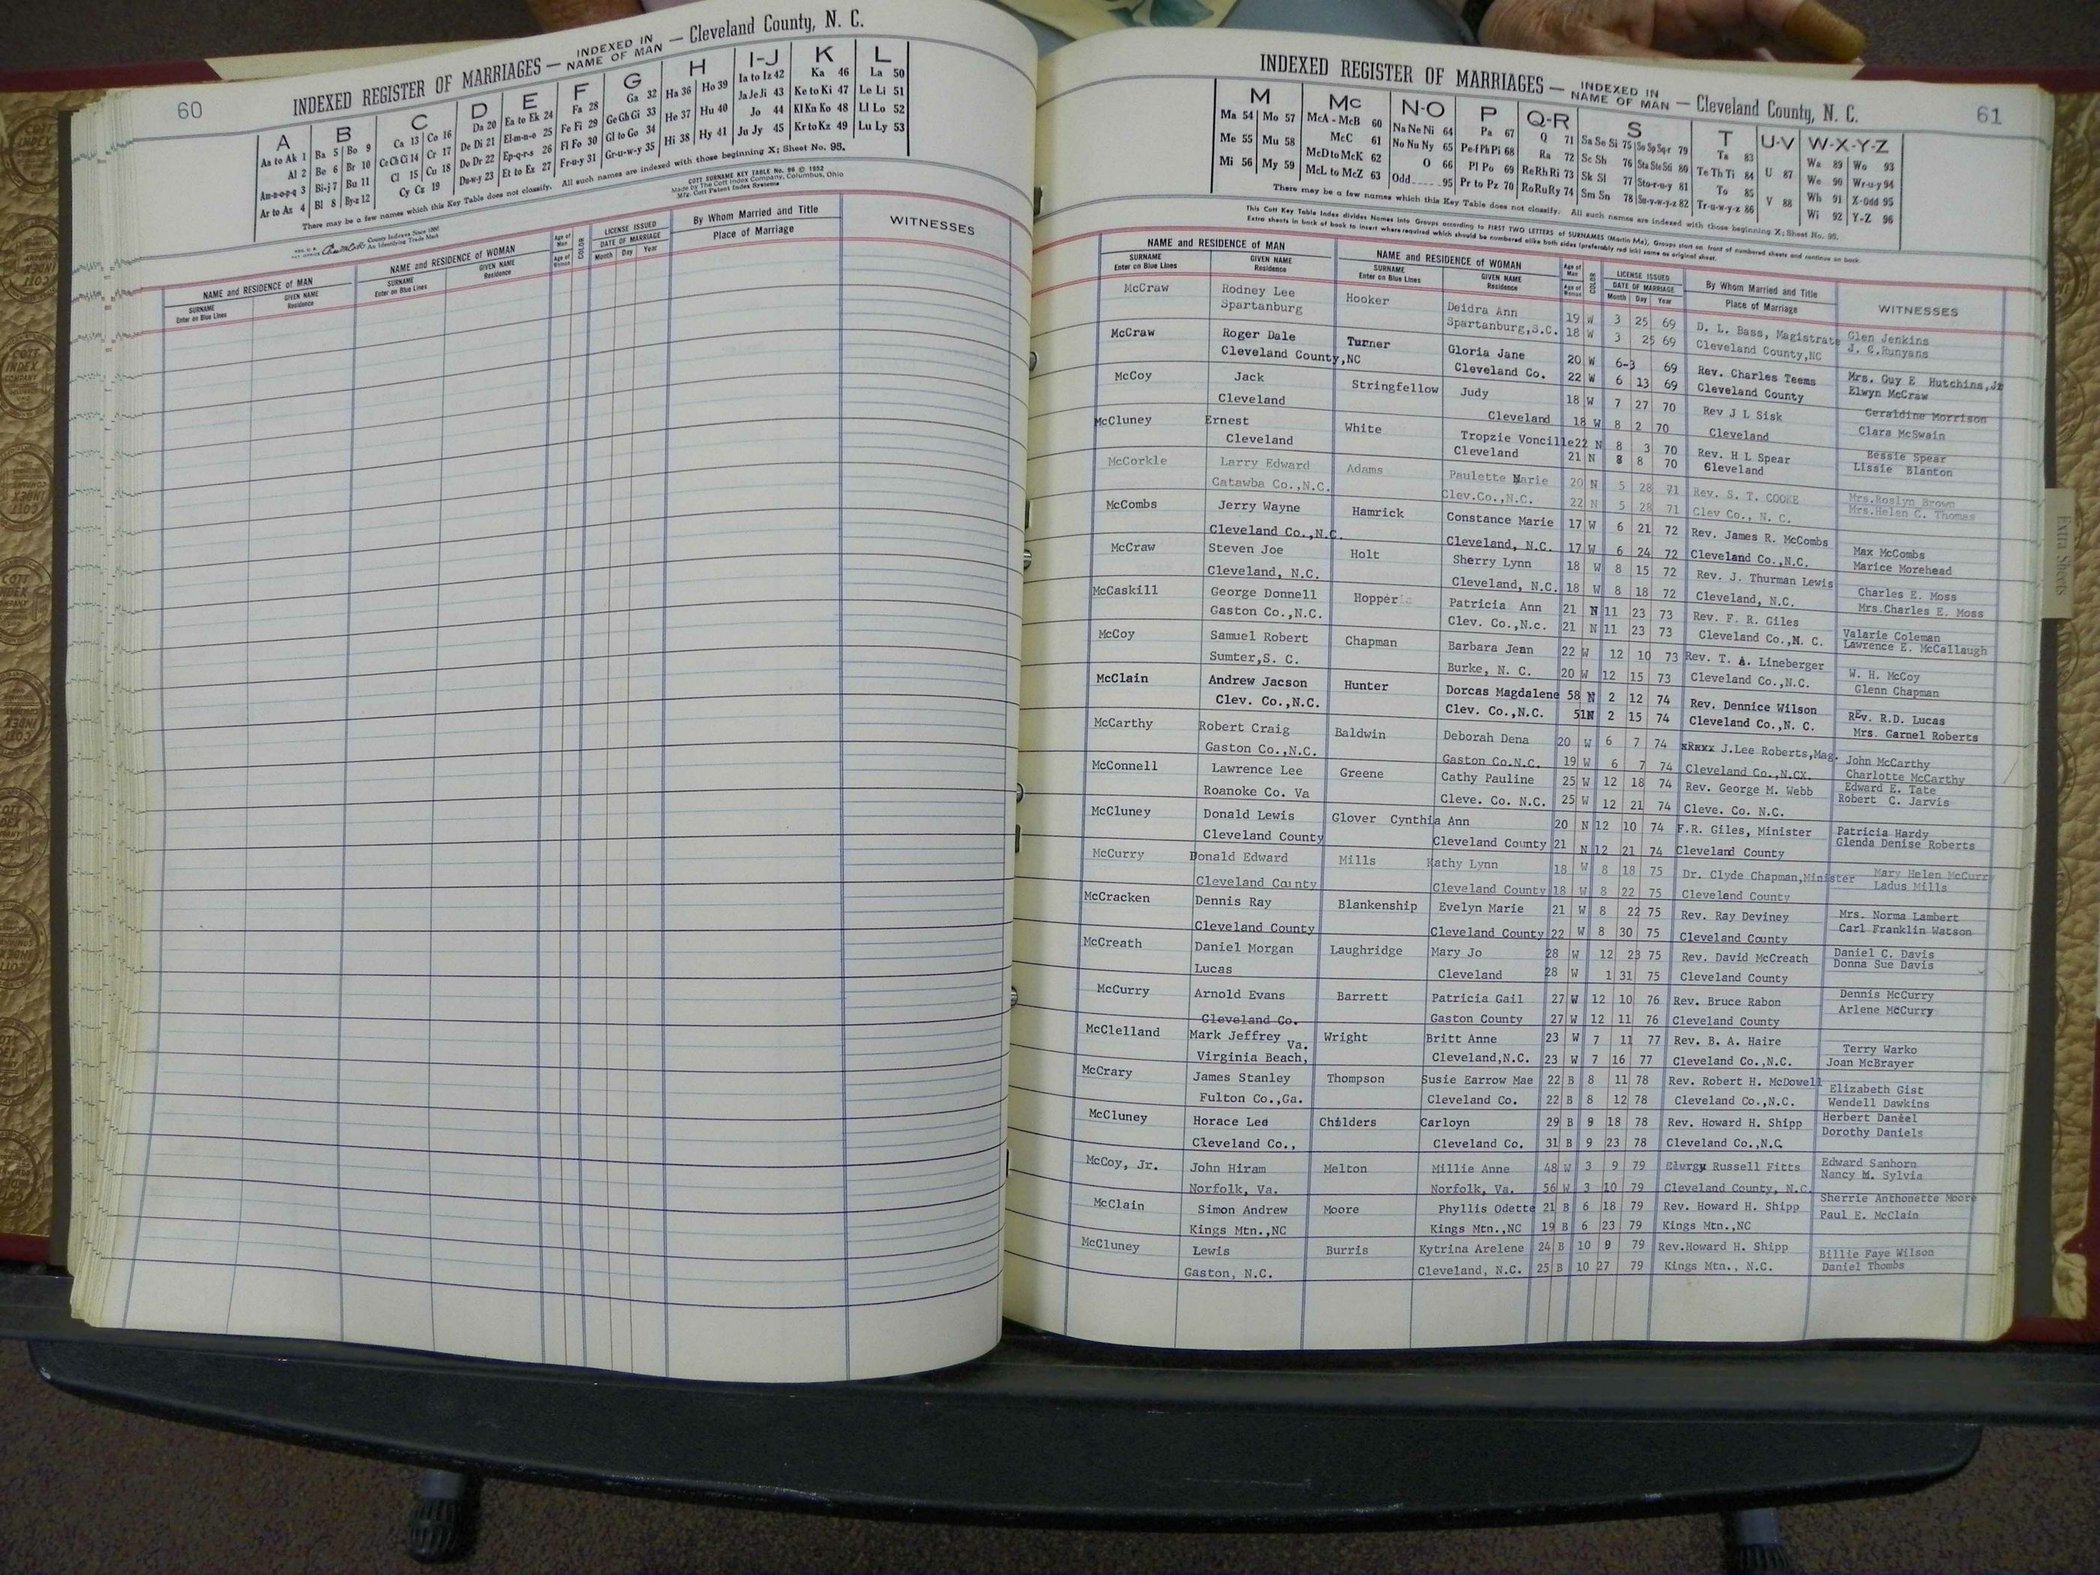 60
INDEXED REGISTER OF MARRIAGES — INDEXED IN NAME OF MAN — Cleveland County, N. C.
A B C D E F G H I-J K L
Aa to Ak 1 Ba 5 Bo 9 Ca 13 Co 16 Da 20 Ea to Ek 24 Fa 28 Ga 32 Ha 36 Ho 39 Ia to Iz 42 Ka 46 La 50
Al 2 Be 6 Br 10 Ce Ch Ci 14 Cr 17 De Di 21 El-m-n-o 25 Fe Fi 29 Ge Gh Gi 33 He 37 Hu 40 Ja Je Ji 43 Ke to Ki 47 Le Li 51
Am-n-o-p-q 3 Bi-j 7 Bu 11 Cl 15 Cu 18 Do Dr 22 Ep-q-r-s 26 Fl Fo 30 Gl to Go 34 Hi 38 Hy 41 Jo 44 Kl Kn Ko 48 Ll Lo 52
Ar to Az 4 Bl 8 By-z 12 Cy Cz 19 Du-w-y 23 Et to Ez 27 Fr-u-y 31 Gr-u-w-y 35 Ju Jy 45 Kr to Kz 49 Lu Ly 53
There may be a few names which this Key Table does not classify. All such names are indexed with those beginning X; Sheet No. 95.
COTT SURNAME KEY TABLE No. 96 © 1952
Made by The Cott Index Company, Columbus, Ohio
Mfg. Cott Patent Index Systems
County Indexes Since 1888
An Identifying Trade Mark
NAME and RESIDENCE OF MAN NAME and RESIDENCE OF WOMAN Age of Man Age of Woman COLOR LICENSE ISSUED By Whom Married and Title WITNESSES
SURNAME GIVEN NAME SURNAME GIVEN NAME DATE OF MARRIAGE Place of Marriage
Enter on Blue Lines Residence Enter on Blue Lines Residence Month Day Year
INDEXED REGISTER OF MARRIAGES — INDEXED IN NAME OF MAN — Cleveland County, N. C.
61
M Mc N-O P Q-R S T U-V W-X-Y-Z
Ma 54 Mo 57 McA - McB 60 Na Ne Ni 64 Pa 67 Q 71 Sa Se Si 75 So Sp Sq-r 79 Ta 83 Wa 89 Wo 93
Me 55 Mu 58 McC 61 No Nu Ny 65 Pe-f Ph Pi 68 Ra 72 Sc Sh 76 Sta Ste Sti 80 Te Th Ti 84 U 87 We 90 Wr-u-y 94
Mi 56 My 59 McD to McK 62 O 66 Pl Po 69 Re Rh Ri 73 Sk Sl 77 Sto-r-u-y 81 To 85 Wh 91 X-Odd 95
McL to McZ 63 Odd 95 Pr to Pz 70 Ro Ru Ry 74 Sm Sn 78 Su-v-w-y-z 82 Tr-u-w-y-z 86 V 88 Wi 92 Y-Z 96
There may be a few names which this Key Table does not classify. All such names are indexed with those beginning X; Sheet No. 95.
This Cott Key Table Index divides Names into Groups according to FIRST TWO LETTERS of SURNAMES (Martin Ma), Groups start on front of numbered sheets and continue on back.
Extra sheets in back of book to insert where required which should be numbered alike both sides (preferably red ink) same as original sheet.
NAME and RESIDENCE OF MAN NAME and RESIDENCE OF WOMAN Age of Man Age of Woman COLOR LICENSE ISSUED By Whom Married and Title WITNESSES
SURNAME GIVEN NAME SURNAME GIVEN NAME DATE OF MARRIAGE Place of Marriage
Enter on Blue Lines Residence Enter on Blue Lines Residence Month Day Year
McCraw Rodney Lee Hooker Deidra Ann 19 W 3 25 69 D. L. Bass, Magistrate Glen Jenkins
Spartanburg Spartanburg,S.C. 18 W 3 25 69 Cleveland County,NC J. C.Runyans
McCraw Roger Dale Turner Gloria Jane 20 W 6-3 69 Rev. Charles Teems Mrs. Guy E Hutchins,Jr
Cleveland County,NC Cleveland Co. 22 W 6 13 69 Cleveland County Elwyn McCraw
McCoy Jack Stringfellow Judy 18 W 7 27 70 Rev J L Sisk Geraldine Morrison
Cleveland Cleveland 18 W 8 2 70 Cleveland Clara McSwain
McCluney Ernest White Tropzie Voncille 22 N 8 3 70 Rev. H L Spear Bessie Spear
Cleveland Cleveland 21 N 8 8 70 Cleveland Lissie Blanton
McCorkle Larry Edward Adams Paulette Marie 20 N 5 28 71 Rev. S. T. COOKE Mrs.Roslyn Brown
Catawba Co.,N.C. Clev.Co.,N.C. 22 N 5 28 71 Clev Co., N. C. Mrs.Helen C. Thomas
McCombs Jerry Wayne Hamrick Constance Marie 17 W 6 21 72 Rev. James R. McCombs Max McCombs
Cleveland Co.,N.C. Cleveland, N.C. 17 W 6 24 72 Cleveland Co.,N.C. Marice Morehead
McCraw Steven Joe Holt Sherry Lynn 18 W 8 15 72 Rev. J. Thurman Lewis Charles E. Moss
Cleveland, N.C. Cleveland, N.C. 18 W 8 18 72 Cleveland, N.C. Mrs.Charles E. Moss
McCaskill George Donnell Hopper Patricia Ann 21 N 11 23 73 Rev. F. R. Giles Valarie Coleman
Gaston Co.,N.C. Clev. Co.,N.c. 21 N 11 23 73 Cleveland Co.,N. C. Lawrence E. McCallaugh
McCoy Samuel Robert Chapman Barbara Jean 22 W 12 10 73 Rev. T. A. Lineberger W. H. McCoy
Sumter,S. C. Burke, N. C. 20 W 12 15 73 Cleveland Co.,N.C. Glenn Chapman
McClain Andrew Jacson Hunter Dorcas Magdalene 58 N 2 12 74 Rev. Dennice Wilson REv. R.D. Lucas
Clev. Co.,N.C. Clev. Co.,N.C. 51N 2 15 74 Cleveland Co.,N. C. Mrs. Garnel Roberts
McCarthy Robert Craig Baldwin Deborah Dena 20 W 6 7 74 xRxxx J.Lee Roberts,Mag. John McCarthy
Gaston Co.,N.C. Gaston Co.N.C. 19 W 6 7 74 Cleveland Co.,N.CX. Charlotte McCarthy
McConnell Lawrence Lee Greene Cathy Pauline 25 W 12 18 74 Rev. George M. Webb Edward E. Tate
Roanoke Co. Va Cleve. Co. N.C. 25 W 12 21 74 Cleve. Co. N.C. Robert C. Jarvis
McCluney Donald Lewis Glover Cynthia Ann 20 N 12 10 74 F.R. Giles, Minister Patricia Hardy
Cleveland County Cleveland County 21 N 12 21 74 Cleveland County Glenda Denise Roberts
McCurry Donald Edward Mills Kathy Lynn 18 W 8 18 75 Dr. Clyde Chapman,Minister Mary Helen McCurry
Cleveland County Cleveland County 18 W 8 22 75 Cleveland County Ladus Mills
McCracken Dennis Ray Blankenship Evelyn Marie 21 W 8 22 75 Rev. Ray Deviney Mrs. Norma Lambert
Cleveland County Cleveland County 22 W 8 30 75 Cleveland County Carl Franklin Watson
McCreath Daniel Morgan Laughridge Mary Jo 28 W 12 23 75 Rev. David McCreath Daniel C. Davis
Lucas Cleveland 28 W 1 31 75 Cleveland County Donna Sue Davis
McCurry Arnold Evans Barrett Patricia Gail 27 W 12 10 76 Rev. Bruce Rabon Dennis McCurry
Cleveland Co. Gaston County 27 W 12 11 76 Cleveland County Arlene McCurry
McClelland Mark Jeffrey Wright Britt Anne 23 W 7 11 77 Rev. B. A. Haire Terry Warko
Virginia Beach, Va. Cleveland,N.C. 23 W 7 16 77 Cleveland Co.,N.C. Joan McBrayer
McCrary James Stanley Thompson Susie Earrow Mae 22 B 8 11 78 Rev. Robert H. McDowell Elizabeth Gist
Fulton Co.,Ga. Cleveland Co. 22 B 8 12 78 Cleveland Co.,N.C. Wendell Dawkins
McCluney Horace Lee Childers Carloyn 29 B 9 18 78 Rev. Howard H. Shipp Herbert Daniel
Cleveland Co., Cleveland Co. 31 B 9 23 78 Cleveland Co.,N.C. Dorothy Daniels
McCoy, Jr. John Hiram Melton Millie Anne 48 W 3 9 79 Clurgy Russell Fitts Edward Sanhorn
Norfolk, Va. Norfolk, Va. 56 W 3 10 79 Cleveland County, N.C. Nancy M. Sylvia
McClain Simon Andrew Moore Phyllis Odette 21 B 6 18 79 Rev. Howard H. Shipp Sherrie Anthonette Moore
Kings Mtn.,NC Kings Mtn.,NC 19 B 6 23 79 Kings Mtn.,NC Paul E. McClain
McCluney Lewis Burris Kytrina Arelene 24 B 10 9 79 Rev.Howard H. Shipp Billie Faye Wilson
Gaston, N.C. Cleveland, N.C. 25 B 10 27 79 Kings Mtn., N.C. Daniel Thombs
Extra Sheets